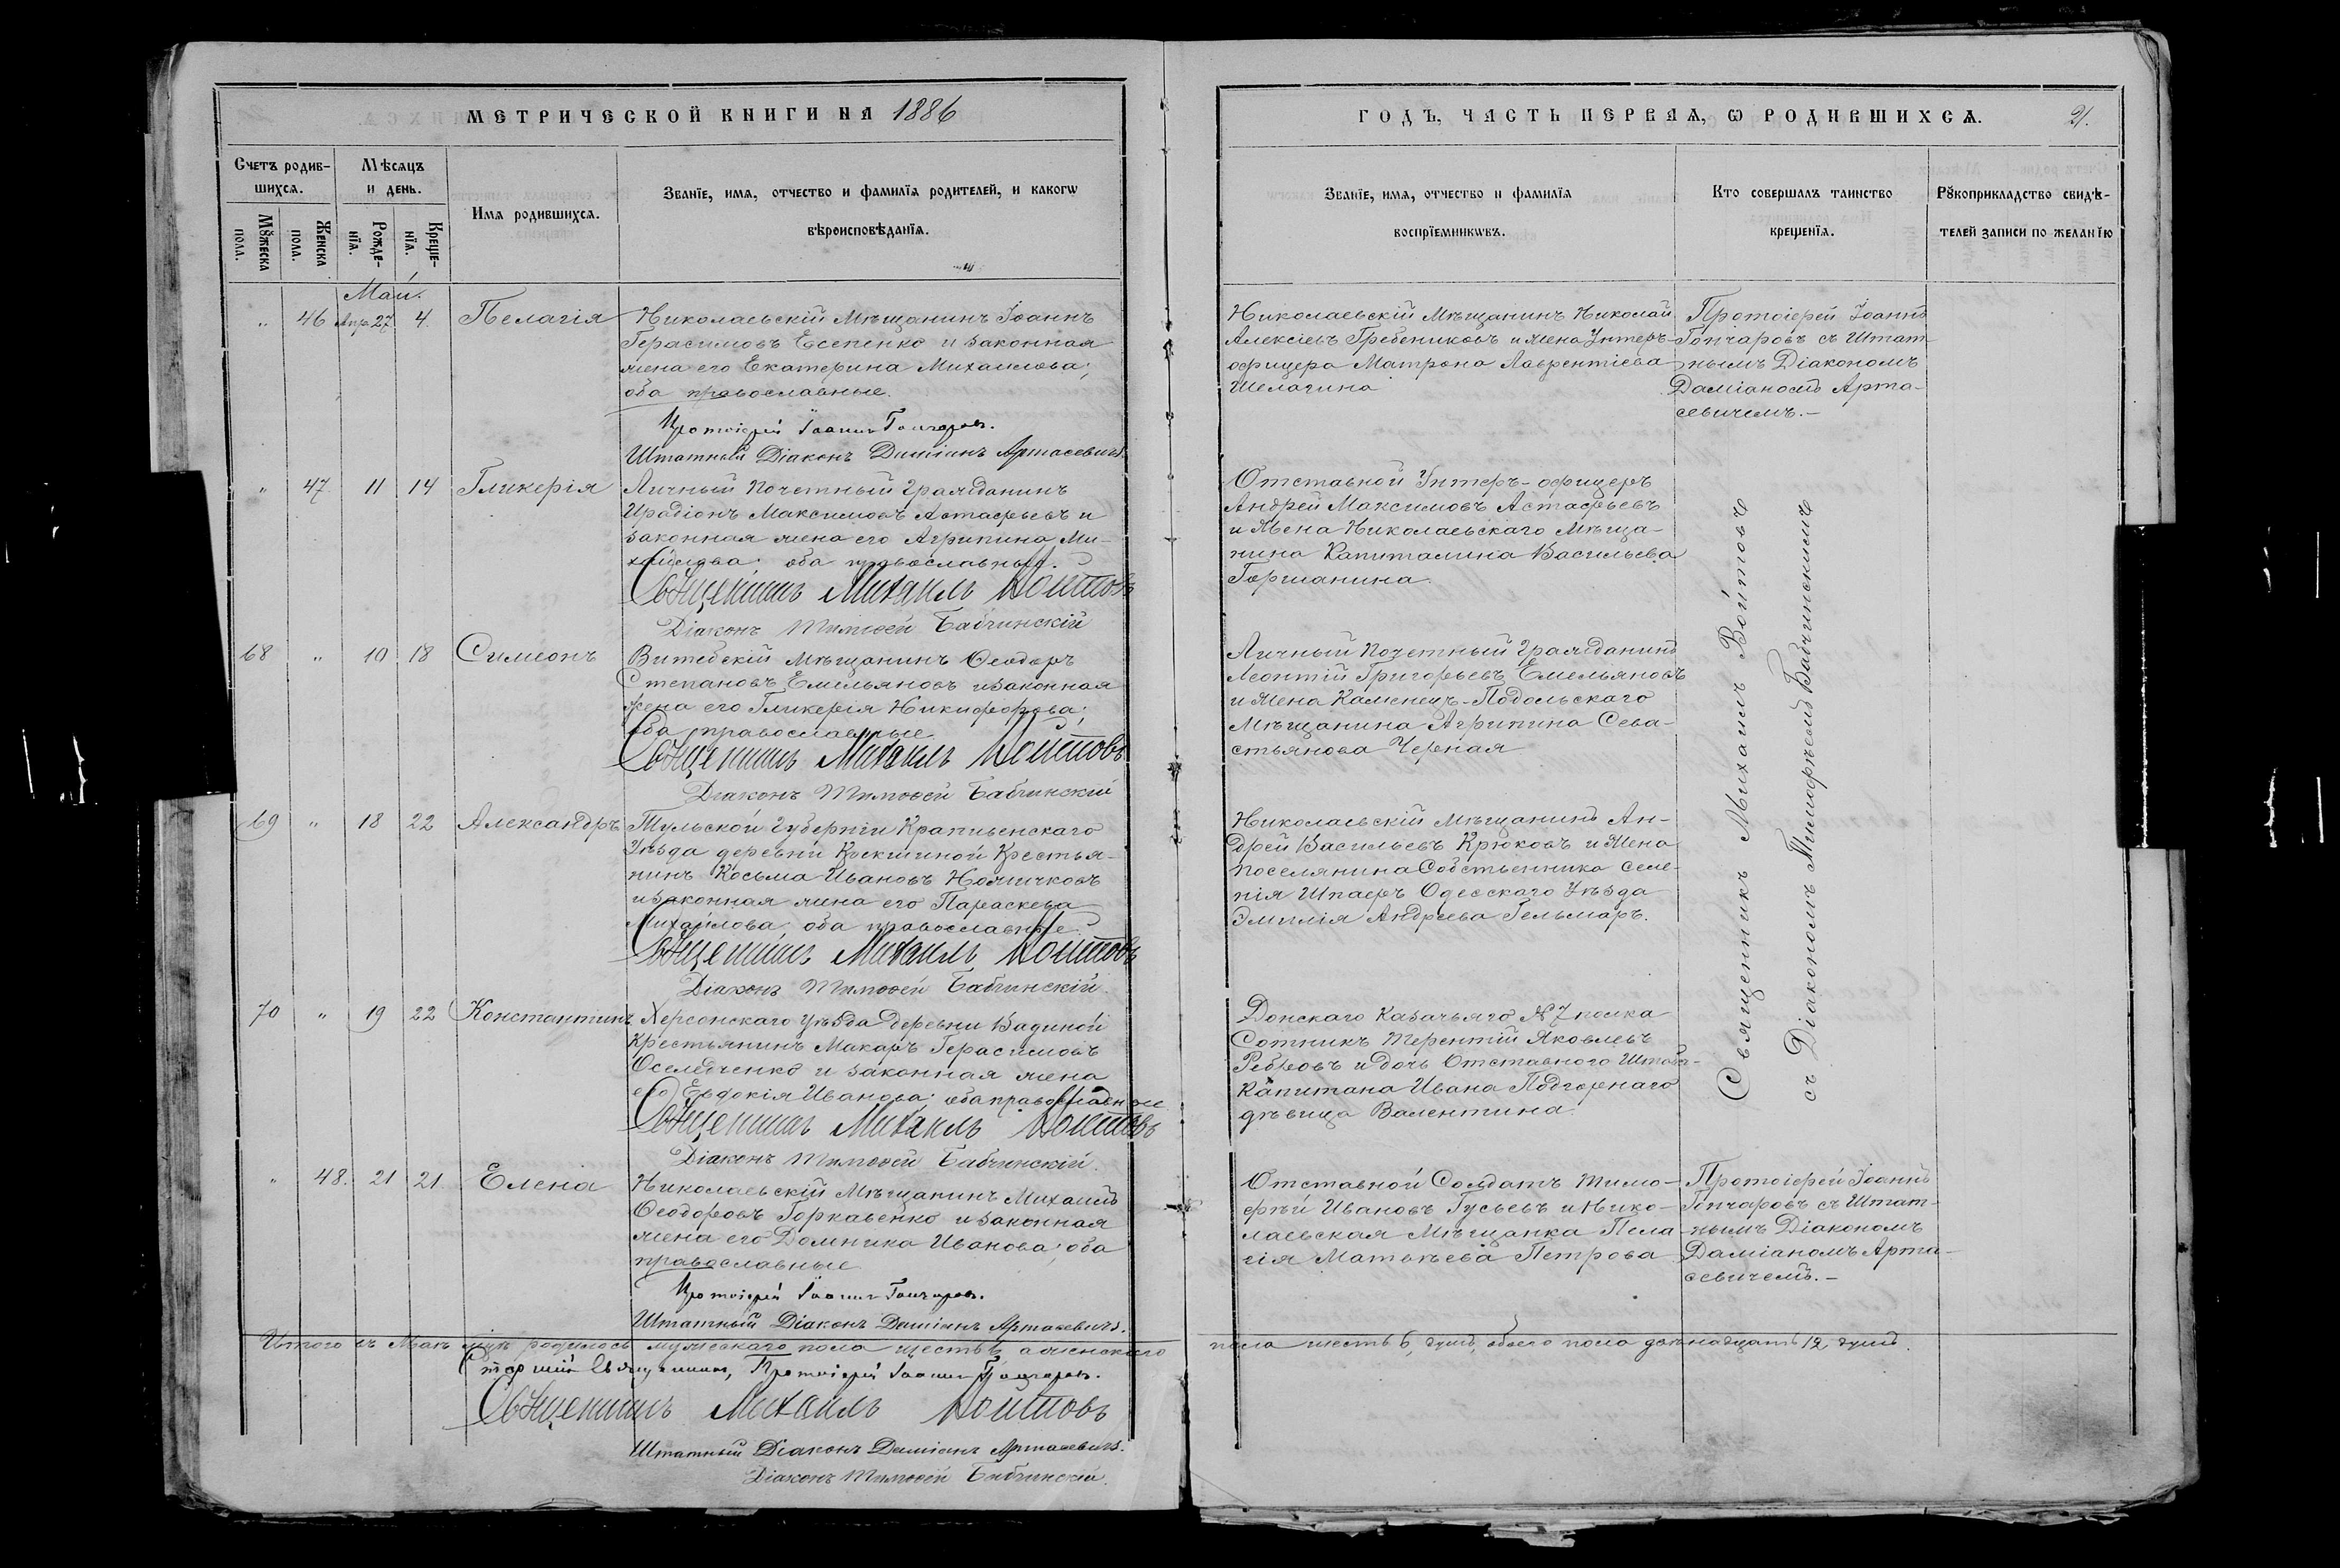 МЕТРИЧЕСКОЙ КНИГИ НА 1886
Счетъ родив-
шихся.
Мѣсяцъ
и день.
Имя родившихся.
Званїе, имя, отчество и фамилїя родителей, и какогѡ
вѣроисповѣданїя.
Мꙋжеска
пола.
Женска
пола.
Рожде-
нїя.
Креще-
нїя.
Май.
" 46 Апр. 27 4. Пелагія
Николаевскій Мѣщанинъ Іоаннъ
Герасимовъ Есепенко и законная
жена его Екатерина Михаилова;
оба православные.
Протоіерей Іоаннъ Гончаровъ.
Штатный Діаконъ Даміанъ Артасевичъ.
" 47 11 14 Гликерія
Личный Почетный Гражданинъ
Иродіонъ Максимовъ Астафьевъ и
законная жена его Агрипина Ми-
хайлова; оба православные.
Священникъ Михаилъ Войтовъ
Діаконъ Тимоѳей Бабчинскій
68 " 10 18 Симеонъ
Витебскій Мѣщанинъ Ѳеодоръ
Степановъ Емельяновъ и законная
жена его Гликерія Никифорова;
оба православные
Священникъ Михаилъ Войтовъ
Діаконъ Тимоѳей Бабчинскій
69 " 18 22 Александръ
Тульской Губерніи Крапивенскаго
Уѣзда деревни Крекшиной Крестья-
нинъ Косьма Ивановъ Ножичковъ
и законная жена его Параскева
Михайлова; оба православные.
Священникъ Михаилъ Войтовъ
Діаконъ Тимоѳей Бабчинскій.
70 " 19 22 Константинъ
Херсонскаго Уѣзда деревни Вадиной
Крестьянинъ Макаръ Герасимовъ
Оселедченко и законная жена
его Евдокія Иванова; оба православные
Священникъ Михаилъ Войтовъ
Діаконъ Тимоѳей Бабчинскій.
" 48. 21 21 Елена
Николаевскій Мѣщанинъ Михаилъ
Ѳеодоровъ Горкавенко и законная
жена его Домника Иванова; оба
православные
Протоіерей Іоаннъ Гончаровъ.
Штатный Діаконъ Даміанъ Артасевичъ.
Итого въ Маѣ мцѣ родилось мужескаго пола шесть 6, а женскаго
Старшій Священникъ, Протоіерей Іоаннъ Гончаровъ.
Священникъ Михаилъ Войтовъ
Штатный Діаконъ Даміанъ Артасевичъ.
Діаконъ Тимоѳей Бабчинскій.
ГОДЪ, ЧАСТЬ ПЕРВАЯ, Ѡ РОДИВШИХСЯ. 21.
Званїе, имя, отчество и фамилїя
воспрїемникѡвъ.
Кто совершалъ таинство
крещенїя.
Рꙋкоприкладство свидѣ-
телей записи по желанїю
Николаевскій Мѣщанинъ Николай
Алексіевъ Гребениковъ и жена Унтеръ-
офицера Матрона Лаврентіева
Шелагина
Протоіерей Іоаннъ
Гончаровъ съ Штат-
нымъ Діакономъ
Даміаномъ Арта-
севичемъ.-
Отставной Унтеръ-офицеръ
Андрей Максимовъ Астафьевъ
и Жена Николаевскаго Мѣща-
нина Капиталина Васильева
Горшанина.
Личный Почетный Гражданинъ
Леонтій Григорьевъ Емельяновъ
и Жена Каменецъ-Подольскаго
Мѣщанина Агрипина Сева-
стьянова Черная
Николаевскій Мѣщанинъ Ан-
дрей Васильевъ Крюковъ и Жена
поселянина Собственника Селе-
нія Шпаеръ Одесскаго Уѣзда
Эмилія Андреева Гельмаръ.
Донскаго Казачьяго № 7 полка
Сотникъ Терентій Яковлевъ
Ребровъ и дочь Отставного Штабъ-
Капитана Ивана Подгорнаго
дѣвица Валентина.
Священникъ Михаилъ Войтовъ
съ Діакономъ Тимофѣемъ Бабчинскимъ
Отставной Солдатъ Тимо-
фѣй Ивановъ Гусевъ и Нико-
лаевская Мѣщанка Пела
гія Матвѣева Петрова
Протоіерей Іоаннъ
Гончаровъ съ Штат-
нымъ Діакономъ
Даміаномъ Арта-
севичемъ.-
пола шесть 6, душъ, обоего пола двѣнадцать 12, душъ.